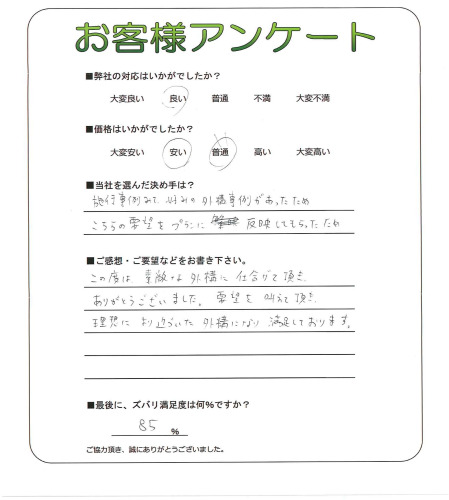 お客様アンケート
■弊社の対応はいかがでしたか？
大変良い 良い 普通 不満 大変不満
■価格はいかがでしたか？
大変安い 安い 普通 高い 大変高い
■当社を選んだ決め手は？
施行事例みて、好みの外構事例があったため
こちらの要望をプランに 反映してもらったため
■ご感想・ご要望などをお書き下さい。
この度は、素敵な外構に仕合げて頂き、
ありがとうございました。要望を叶えて頂き、
理想により近づいた外構になり満足しております。
■最後に、ズバリ満足度は何％ですか？
85 ％
ご協力頂き、誠にありがとうございました。